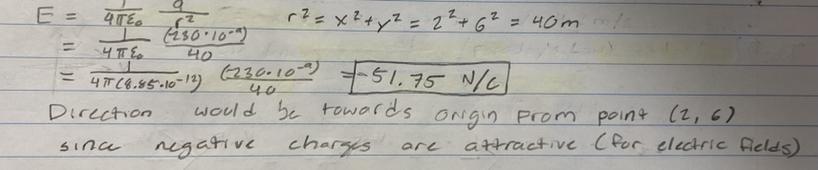 E = 1/4πε₀ q/r² r² = x² + y² = 2² + 6² = 40m
= 1/4πε₀ (-230·10⁻⁹)/40
= 1/4π(8.85·10⁻¹²) (-230·10⁻⁹)/40 = -51.75 N/C
Direction would be towards origin from point (2, 6)
since negative charges are attractive (for electric fields)